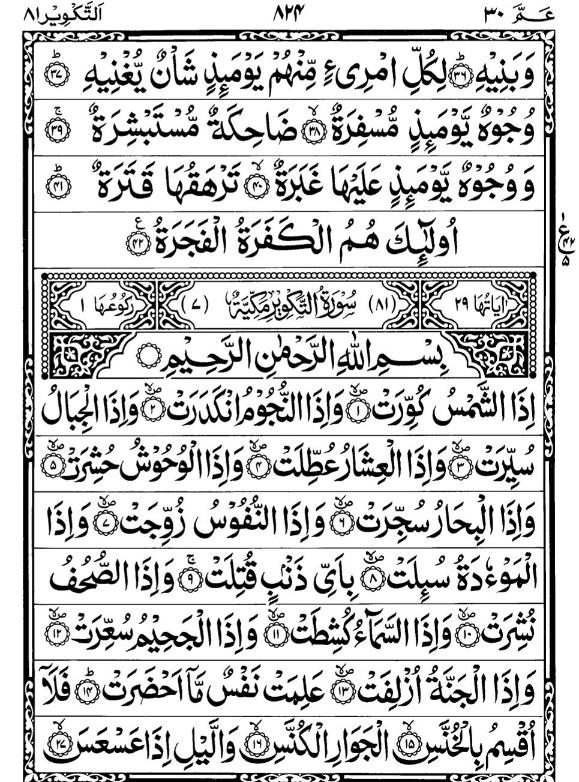 عَمَّ ٣٠ ٨٢٤ اَلتَّكْوِيْر ٨١
وَبَنِيْهِ ؕ﴿٣٦﴾ لِكُلِّ امْرِئٍ مِّنْهُمْ يَوْمَئِذٍ شَاْنٌ يُّغْنِيْهِ ؕ﴿٣٧﴾
وُجُوْهٌ يَّوْمَئِذٍ مُّسْفِرَةٌ ۙ﴿٣٨﴾ ضَاحِكَةٌ مُّسْتَبْشِرَةٌ ۚ﴿٣٩﴾
وَوُجُوْهٌ يَّوْمَئِذٍ عَلَيْهَا غَبَرَةٌ ۙ﴿٤٠﴾ تَرْهَقُهَا قَتَرَةٌ ؕ﴿٤١﴾
اُولٰٓئِكَ هُمُ الْكَفَرَةُ الْفَجَرَةُ ﴿٤٢﴾ ع ٤٢ ٥
اٰيَاتُهَا ٢٩ (٨١) سُوْرَةُ التَّكْوِيْرِ مَكِّيَّةٌ (٧) رُكُوْعُهَا ١
بِسْمِ اللهِ الرَّحْمٰنِ الرَّحِيْمِ
اِذَا الشَّمْسُ كُوِّرَتْ ﴿١﴾ وَاِذَا النُّجُوْمُ انْكَدَرَتْ ﴿٢﴾ وَاِذَا الْجِبَالُ
سُيِّرَتْ ﴿٣﴾ وَاِذَا الْعِشَارُ عُطِّلَتْ ﴿٤﴾ وَاِذَا الْوُحُوْشُ حُشِرَتْ ﴿٥﴾
وَاِذَا الْبِحَارُ سُجِّرَتْ ﴿٦﴾ وَاِذَا النُّفُوْسُ زُوِّجَتْ ﴿٧﴾ وَاِذَا
الْمَوْءٗدَةُ سُئِلَتْ ﴿٨﴾ بِاَيِّ ذَنْۢبٍ قُتِلَتْ ۚ﴿٩﴾ وَاِذَا الصُّحُفُ
نُشِرَتْ ﴿١٠﴾ وَاِذَا السَّمَآءُ كُشِطَتْ ﴿١١﴾ وَاِذَا الْجَحِيْمُ سُعِّرَتْ ﴿١٢﴾
وَاِذَا الْجَنَّةُ اُزْلِفَتْ ﴿١٣﴾ عَلِمَتْ نَفْسٌ مَّاۤ اَحْضَرَتْ ؕ﴿١٤﴾ فَلَاۤ
اُقْسِمُ بِالْخُنَّسِ ۙ﴿١٥﴾ الْجَوَارِ الْكُنَّسِ ۙ﴿١٦﴾ وَالَّيْلِ اِذَا عَسْعَسَ ۙ﴿١٧﴾